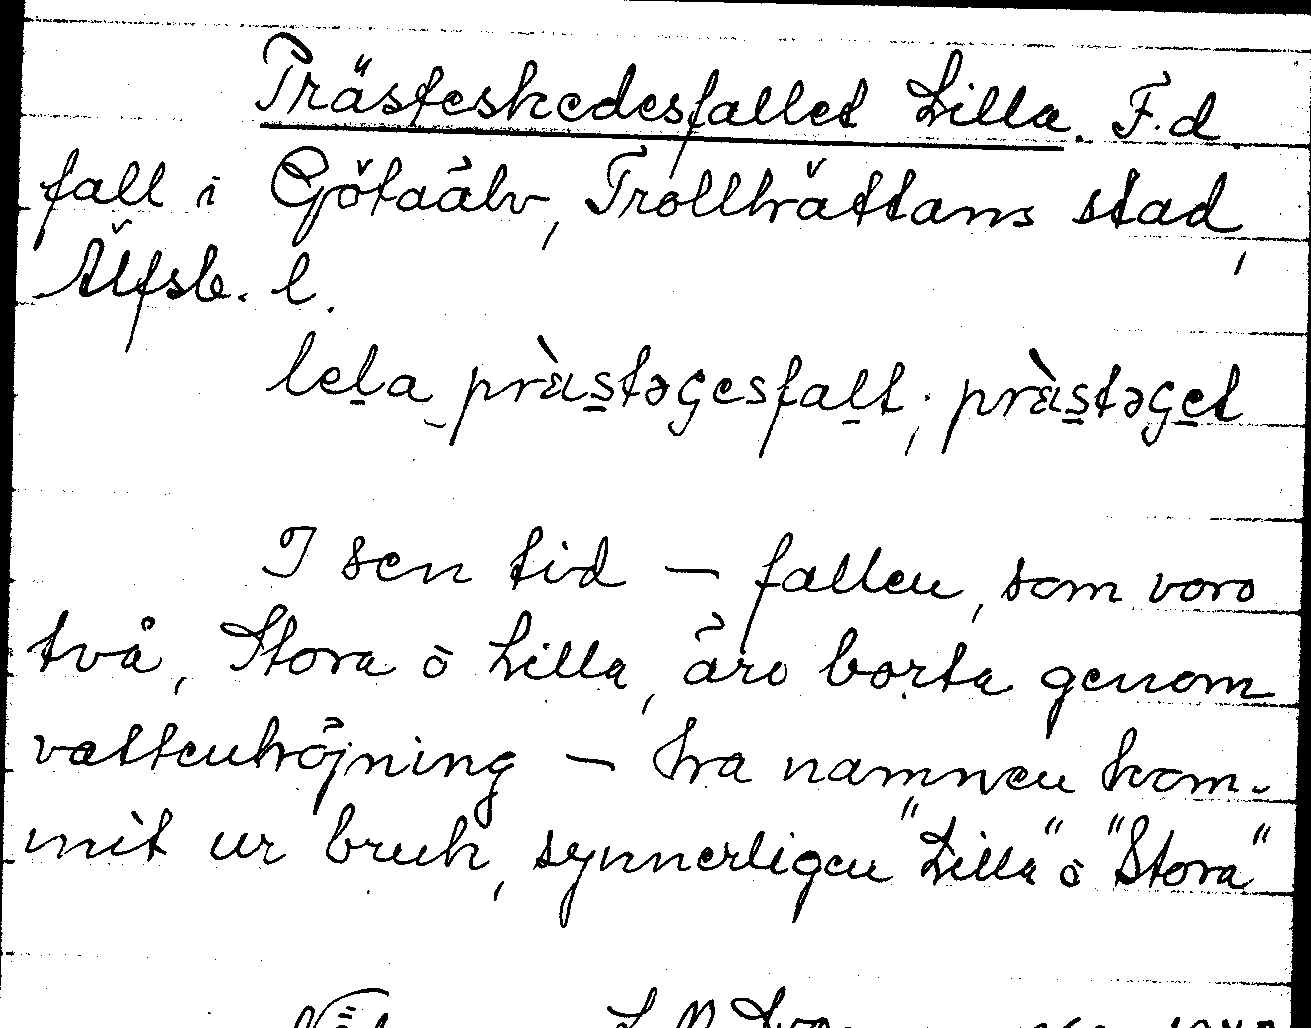 Prästeskedesfallet Lilla. F.d.
fall i Götaälv, Trollhättans stad,
Älfsb. l.
lela prästəgesfalt; prästəget
I sen tid — fallen, som voro
två, Stora o Lilla, äro borta genom
vattenhöjning — ha namnen kom-
mit ur bruk, synnerligen "Lilla" o "Stora"